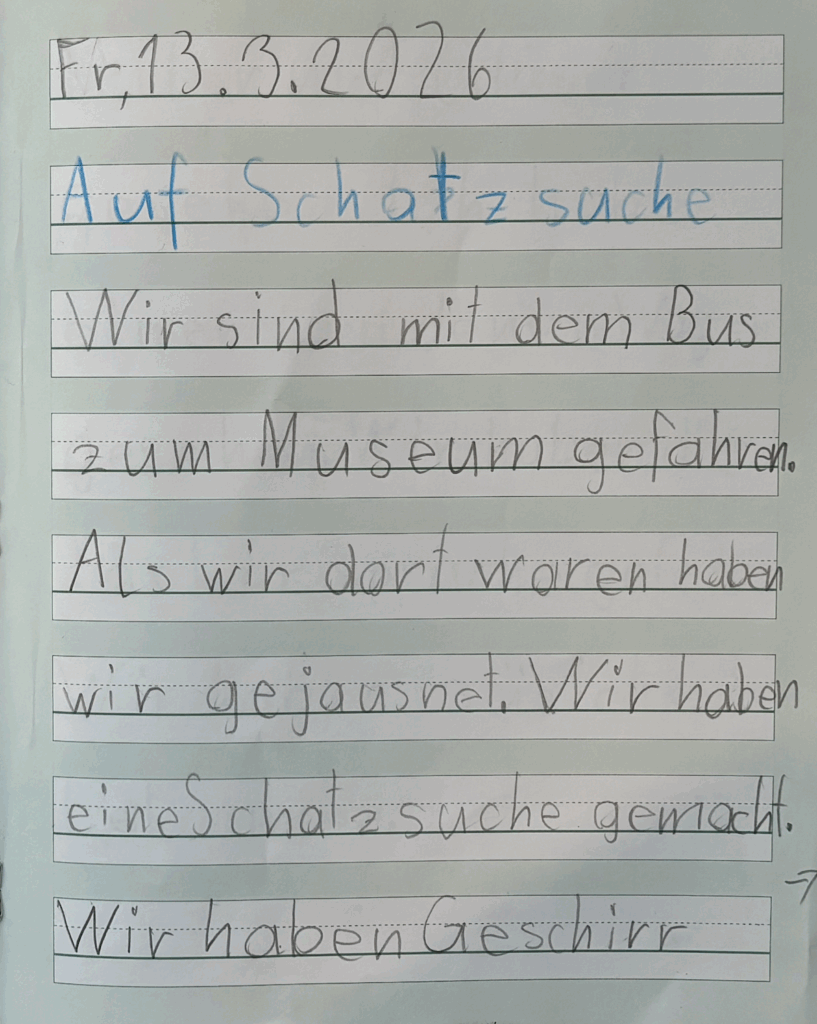 Fr, 13.3.2026
Auf Schatzsuche
Wir sind mit dem Bus
zum Museum gefahren.
Als wir dort waren haben
wir gejausnet. Wir haben
eine Schatzsuche gemacht.
Wir haben Geschirr
→